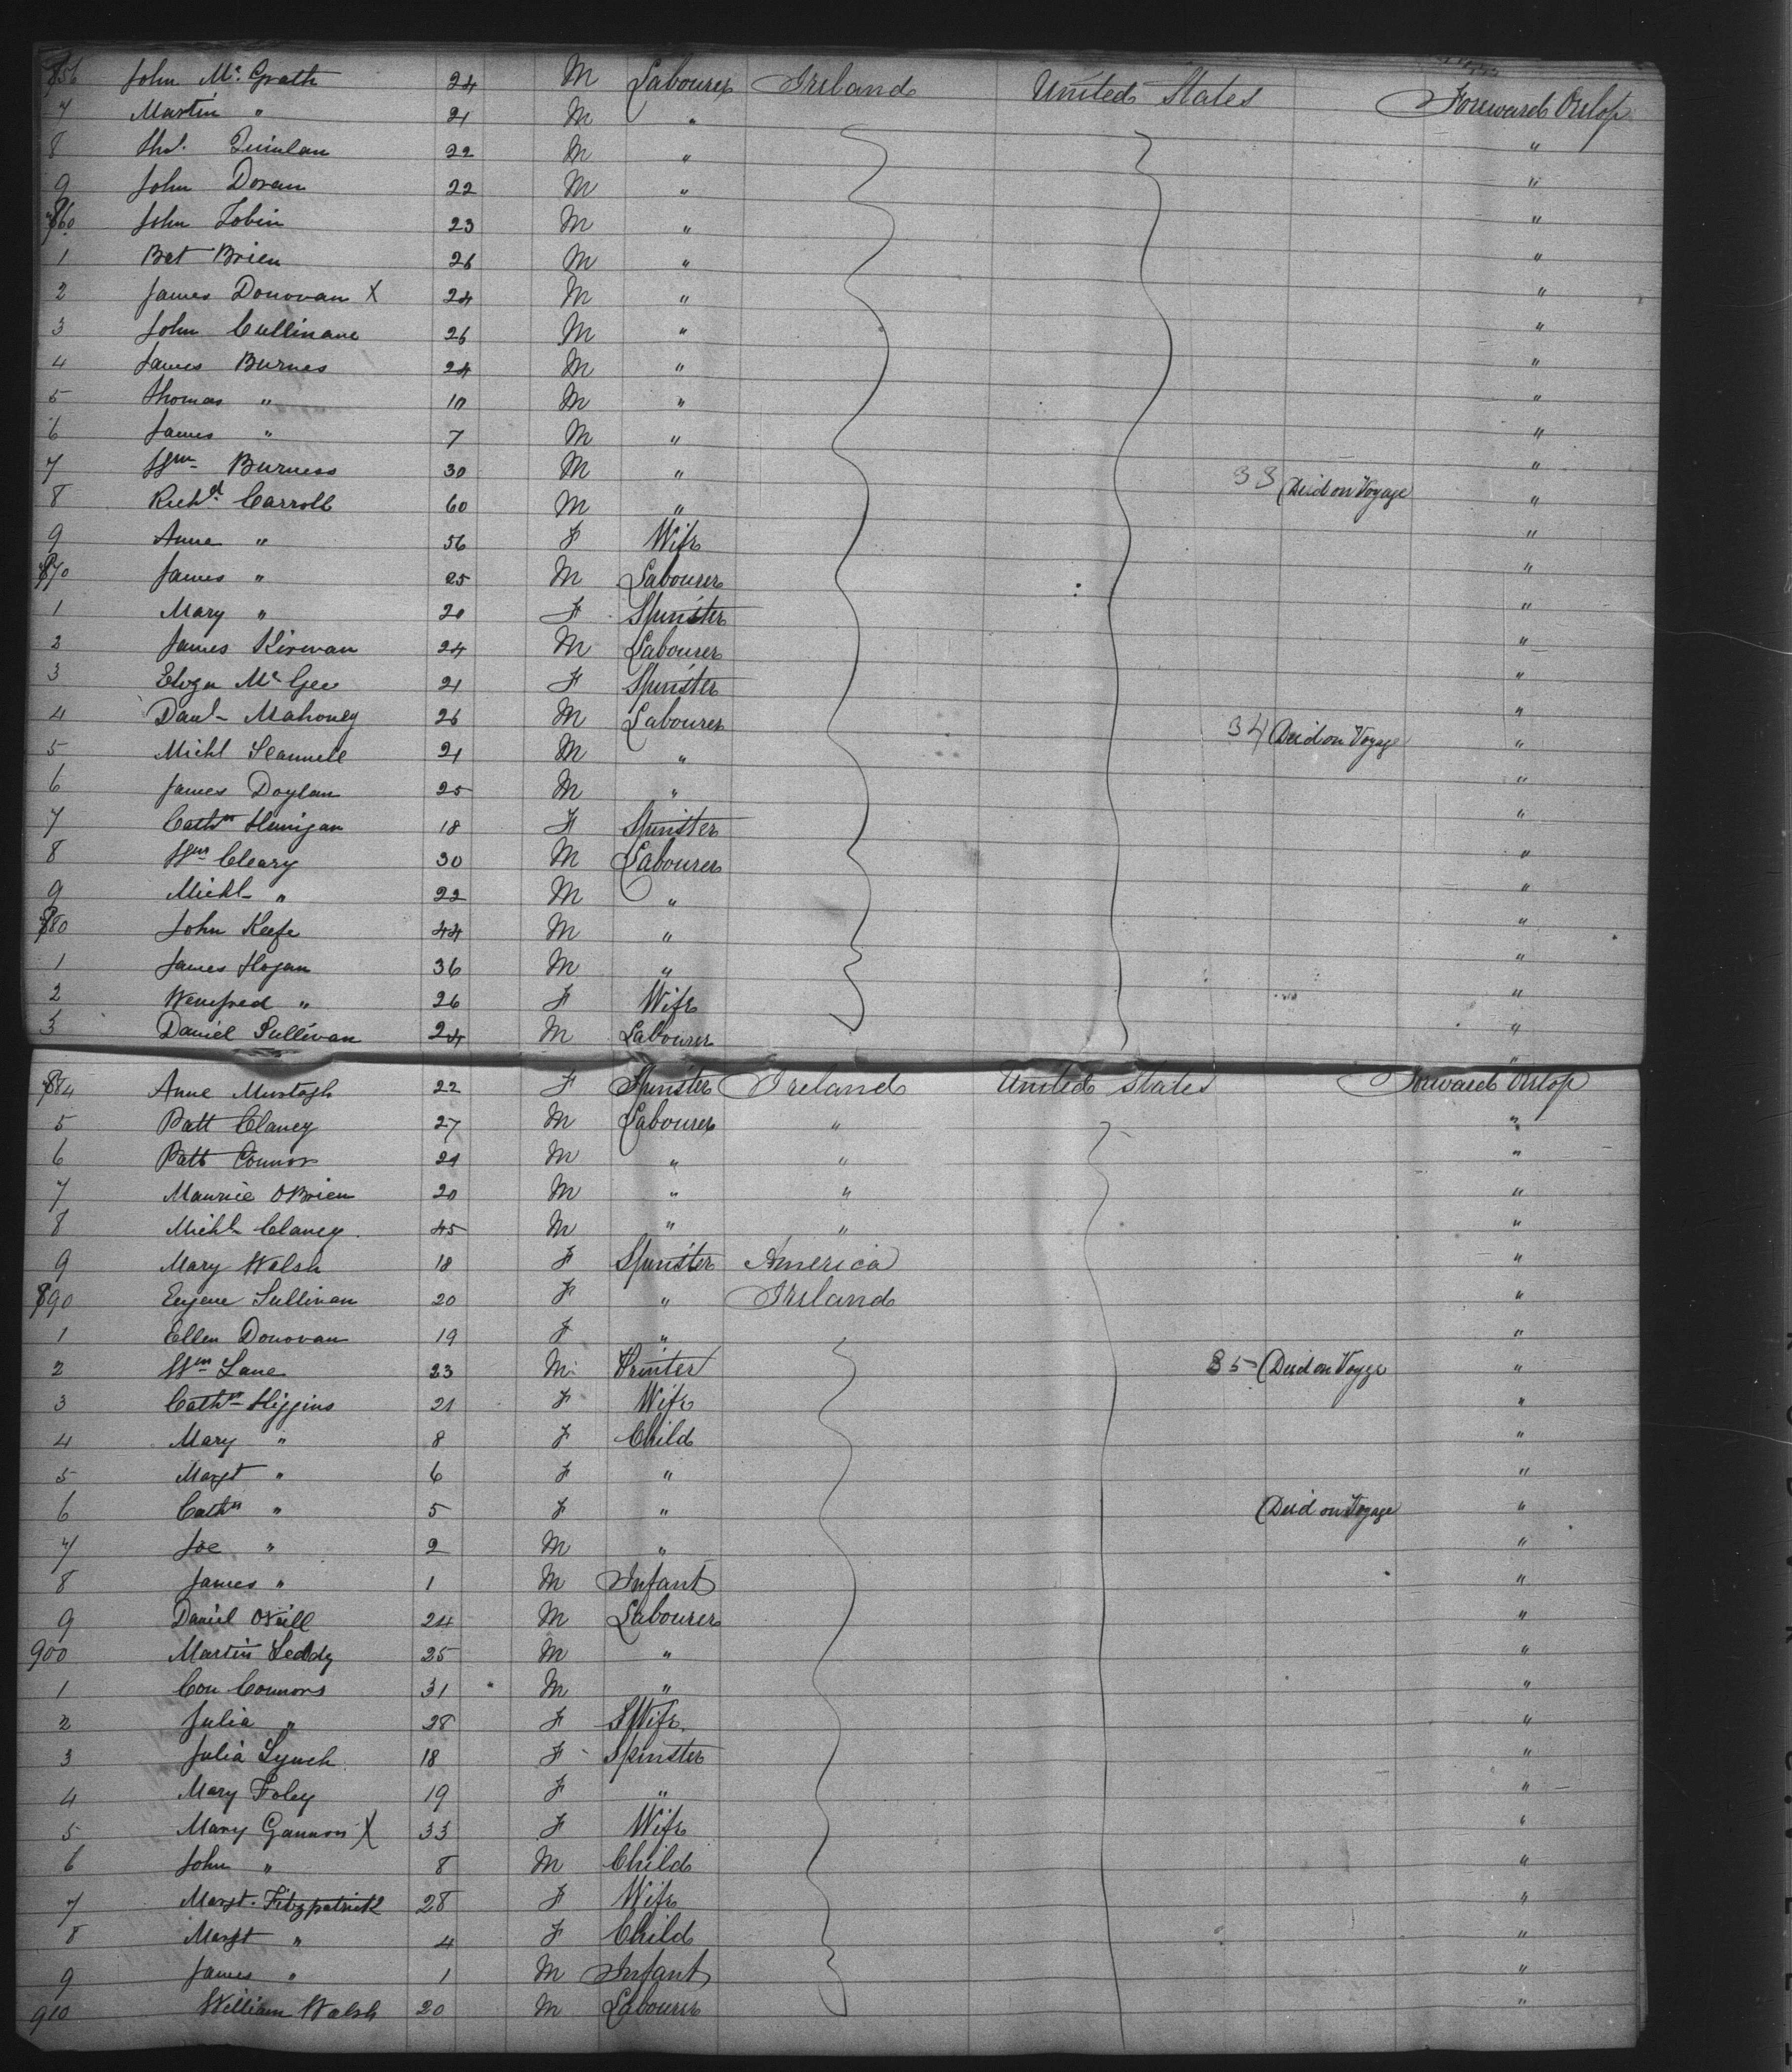 856 John Mc Grath 24 M Labourer Ireland United States Forward Orlop
7 Martin " 21 M "
8 Thos. Quinlan 22 M " "
9 John Doran 22 M " "
860 John Tobin 23 M " "
1 Bat Brien 26 M " "
2 James Donovan X 24 M " "
3 John Cullinane 26 M " "
4 James Burnes 24 M " "
5 Thomas " 10 M " "
6 James " 7 M " "
7 Wm Burness 30 M " "
8 Richd Carroll 60 M " 33 (Died on Voyage "
9 Anne " 56 F Wife "
870 James " 25 M Labourer "
1 Mary " 20 F Spinster "
2 James Kirwan 24 M Labourer "
3 Eliza Mc Gee 21 F Spinster "
4 Danl Mahoney 26 M Labourer "
5 Michl Scannell 21 M " 34 (Died on Voyage "
6 James Doylan 25 M " "
7 Cathn Hunigan 18 F Spinster "
8 Wm Cleary 30 M Labourer "
9 Michl " 22 M " "
880 John Keefe 44 M " "
1 James Hogan 36 M " "
2 Wenefred " 26 F Wife "
3 Daniel Sullivan 24 M Labourer "
884 Anne Murtagh 22 F Spinster Ireland United States Forward Orlop
5 Patt Clancy 27 M Labourer " "
6 Patt Connor 21 M " " "
7 Maurice OBrien 20 M " " "
8 Michl Clancy 45 M " " "
9 Mary Walsh 18 F Spinster America "
890 Eugene Sullivan 20 F " Ireland "
1 Ellen Donovan 19 F " "
2 Wm Lane 23 M Printer 35 (Died on Voyge "
3 Cathn Higgins 21 F Wife "
4 Mary " 8 F Child "
5 Margt " 6 F " "
6 Cathn " 5 F " (Died on Voyage "
7 Joe " 2 M " "
8 James " 1 M Infant "
9 Daniel ONeill 24 M Labourer "
900 Martin Leddy 25 M " "
1 Con Connors 31 M " "
2 Julia " 28 F Wife "
3 Julia Lynch 18 F Spinster "
4 Mary Foley 19 F " "
5 Mary Gannon X 33 F Wife "
6 John " 8 M Child "
7 Margt. Fitzpatrick 28 F Wife "
8 Margt " 4 F Child "
9 James " 1 M Infant "
910 William Walsh 20 M Labourer "